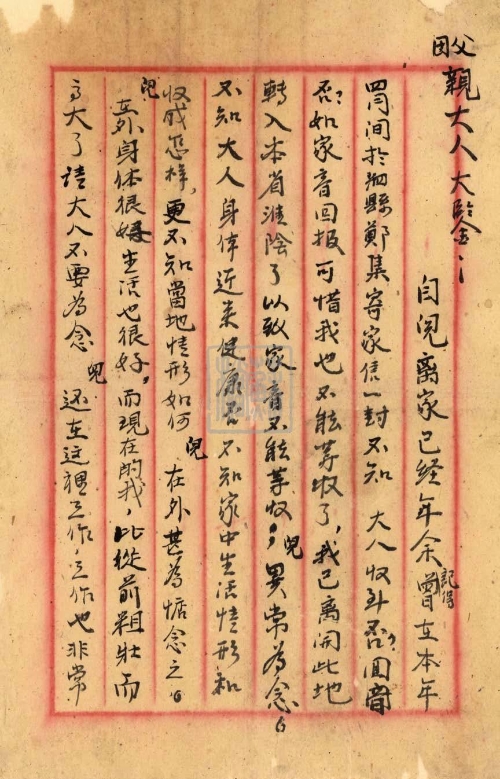 父親大人大鑒：
自況离家已经年余，記得曾在本年
四月间於泗縣鄭集寄家信一封不知 大人收到否？回音
否？如家音回报可惜我也不能等收了，我已离開此地
轉入本省淮陰了以致家音不能等收，兒異常為念。
不知大人身体近来健康否不知家中生活情形和
收成怎样，更不知當地情形如何 兒在外甚為惦念之。
兒在外身体很好生活也很好，而現在的我，比從前粗壯而
高大了請大人不要為念 兒还在这裡工作，工作也非常